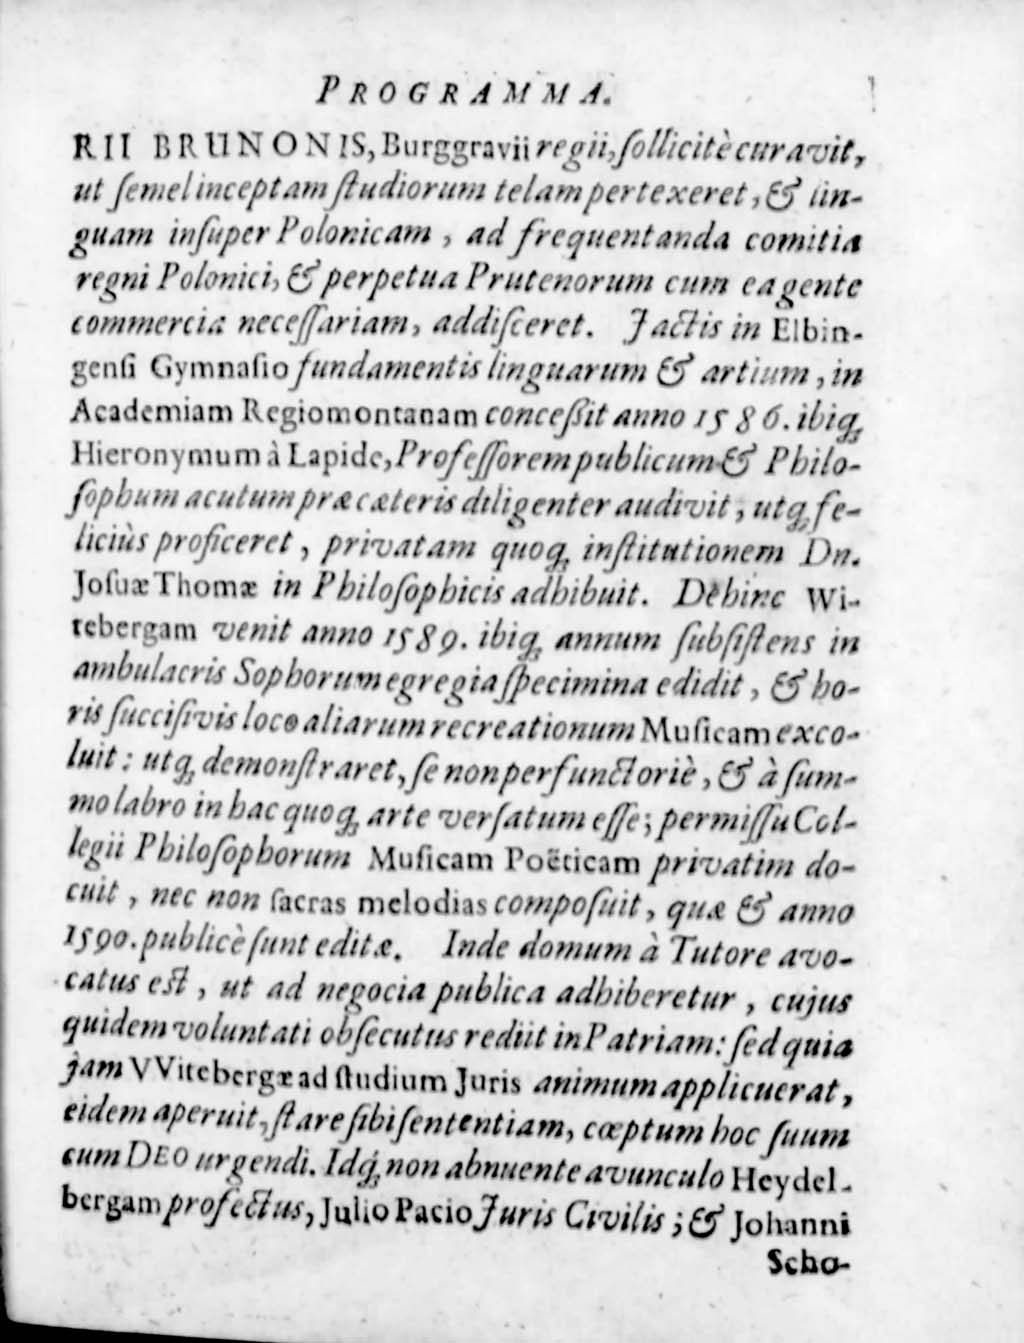 PROGRAMMA.
RII BRUNONIS, Burggravii regii, ſollicitè curavit,
ut ſemel inceptam ſtudiorum telam pertexeret, & lin-
guam inſuper Polonicam, ad frequentanda comitia
regni Polonici, & perpetua Prutenorum cum ea gente
commercia neceſſariam, addiſceret. Jactis in Elbin-
genſi Gymnaſio fundamentis linguarum & artium, in
Academiam Regiomontanam conceßit anno 1586. ibiq;
Hieronymum à Lapide, Profeſſorem publicum & Philo-
ſophum acutum præ cæteris diligenter audivit, utq; fe-
liciùs proficeret, privatam quoq; inſtitutionem Dn.
Joſuæ Thomæ in Philoſophicis adhibuit. Dehinc Wi-
tebergam venit anno 1589. ibiq; annum ſubſiſtens in
ambulacris Sophorum egregia ſpecimina edidit, & ho-
ris ſucciſivis loco aliarum recreationum Muſicam exco-
luit: utq; demonſtraret, ſe non perfunctoriè, & à ſum-
mo labro in hac quoq; arte verſatum eſſe; permiſſu Col-
legii Philoſophorum Muſicam Poëticam privatim do-
cuit, nec non ſacras melodias compoſuit, quæ & anno
1590. publicè ſunt editæ. Inde domum à Tutore avo-
catus est, ut ad negocia publica adhiberetur, cujus
quidem voluntati obſecutus rediit in Patriam: ſed quia
jam VVitebergæ ad ſtudium Juris animum applicuerat,
eidem aperuit, ſtare ſibi ſententiam, cœptum hoc ſuum
cum DEO urgendi. Idq; non abnuente avunculo Heydel-
bergam profectus, Julio Pacio Juris Civilis; & Johanni
Scho-